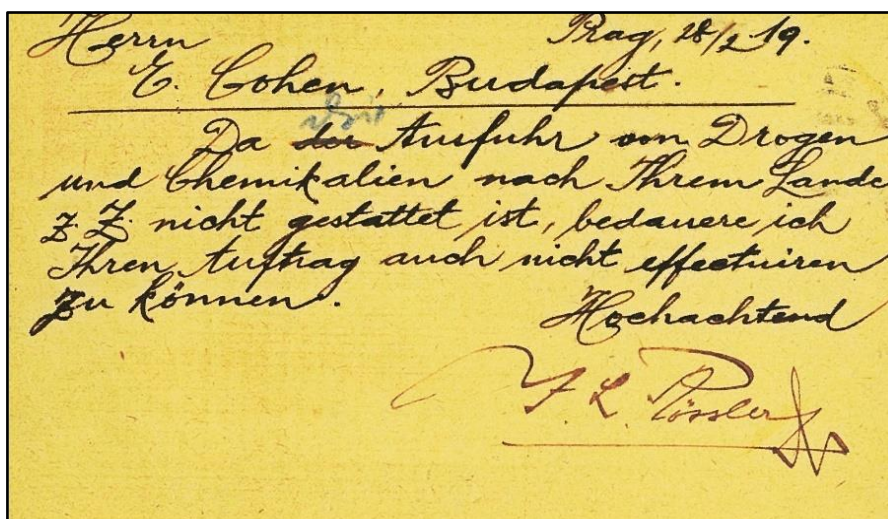 Herrn
Prag, 28/2 19.
E. Cohen, Budapest.
die
Da der Ausfuhr von Drogen
und Chemikalien nach Ihrem Lande
z. Z. nicht gestattet ist, bedauere ich
Ihren Auftrag auch nicht effectuiren
zu können.
Hochachtend
F. L.